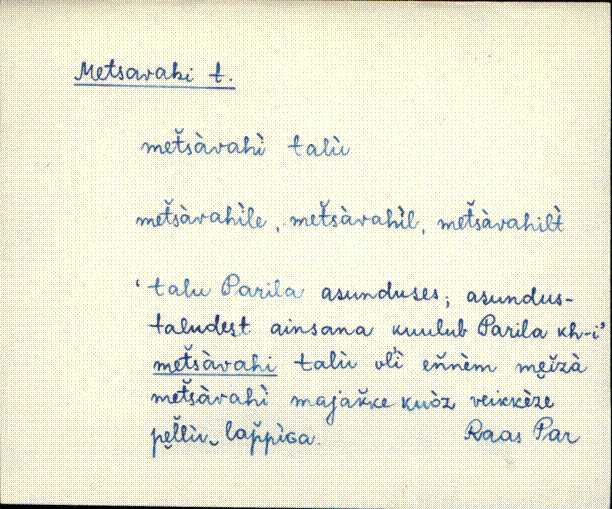 Metsavahi t.
met̆sàvahì talù
met̆sàvahìle, met̆sàvahìl, met̆sàvahilt̀
‘talu Parila asunduses; asundus-
taludest ainsana kuulub Parila kh-i’
met̆sàvahi talù olì en̆nèm mẹizà
met̆sàvahì majak̆ke kuòz veikkèze
pẹl̆lù lap̆pìGa. Raas Par